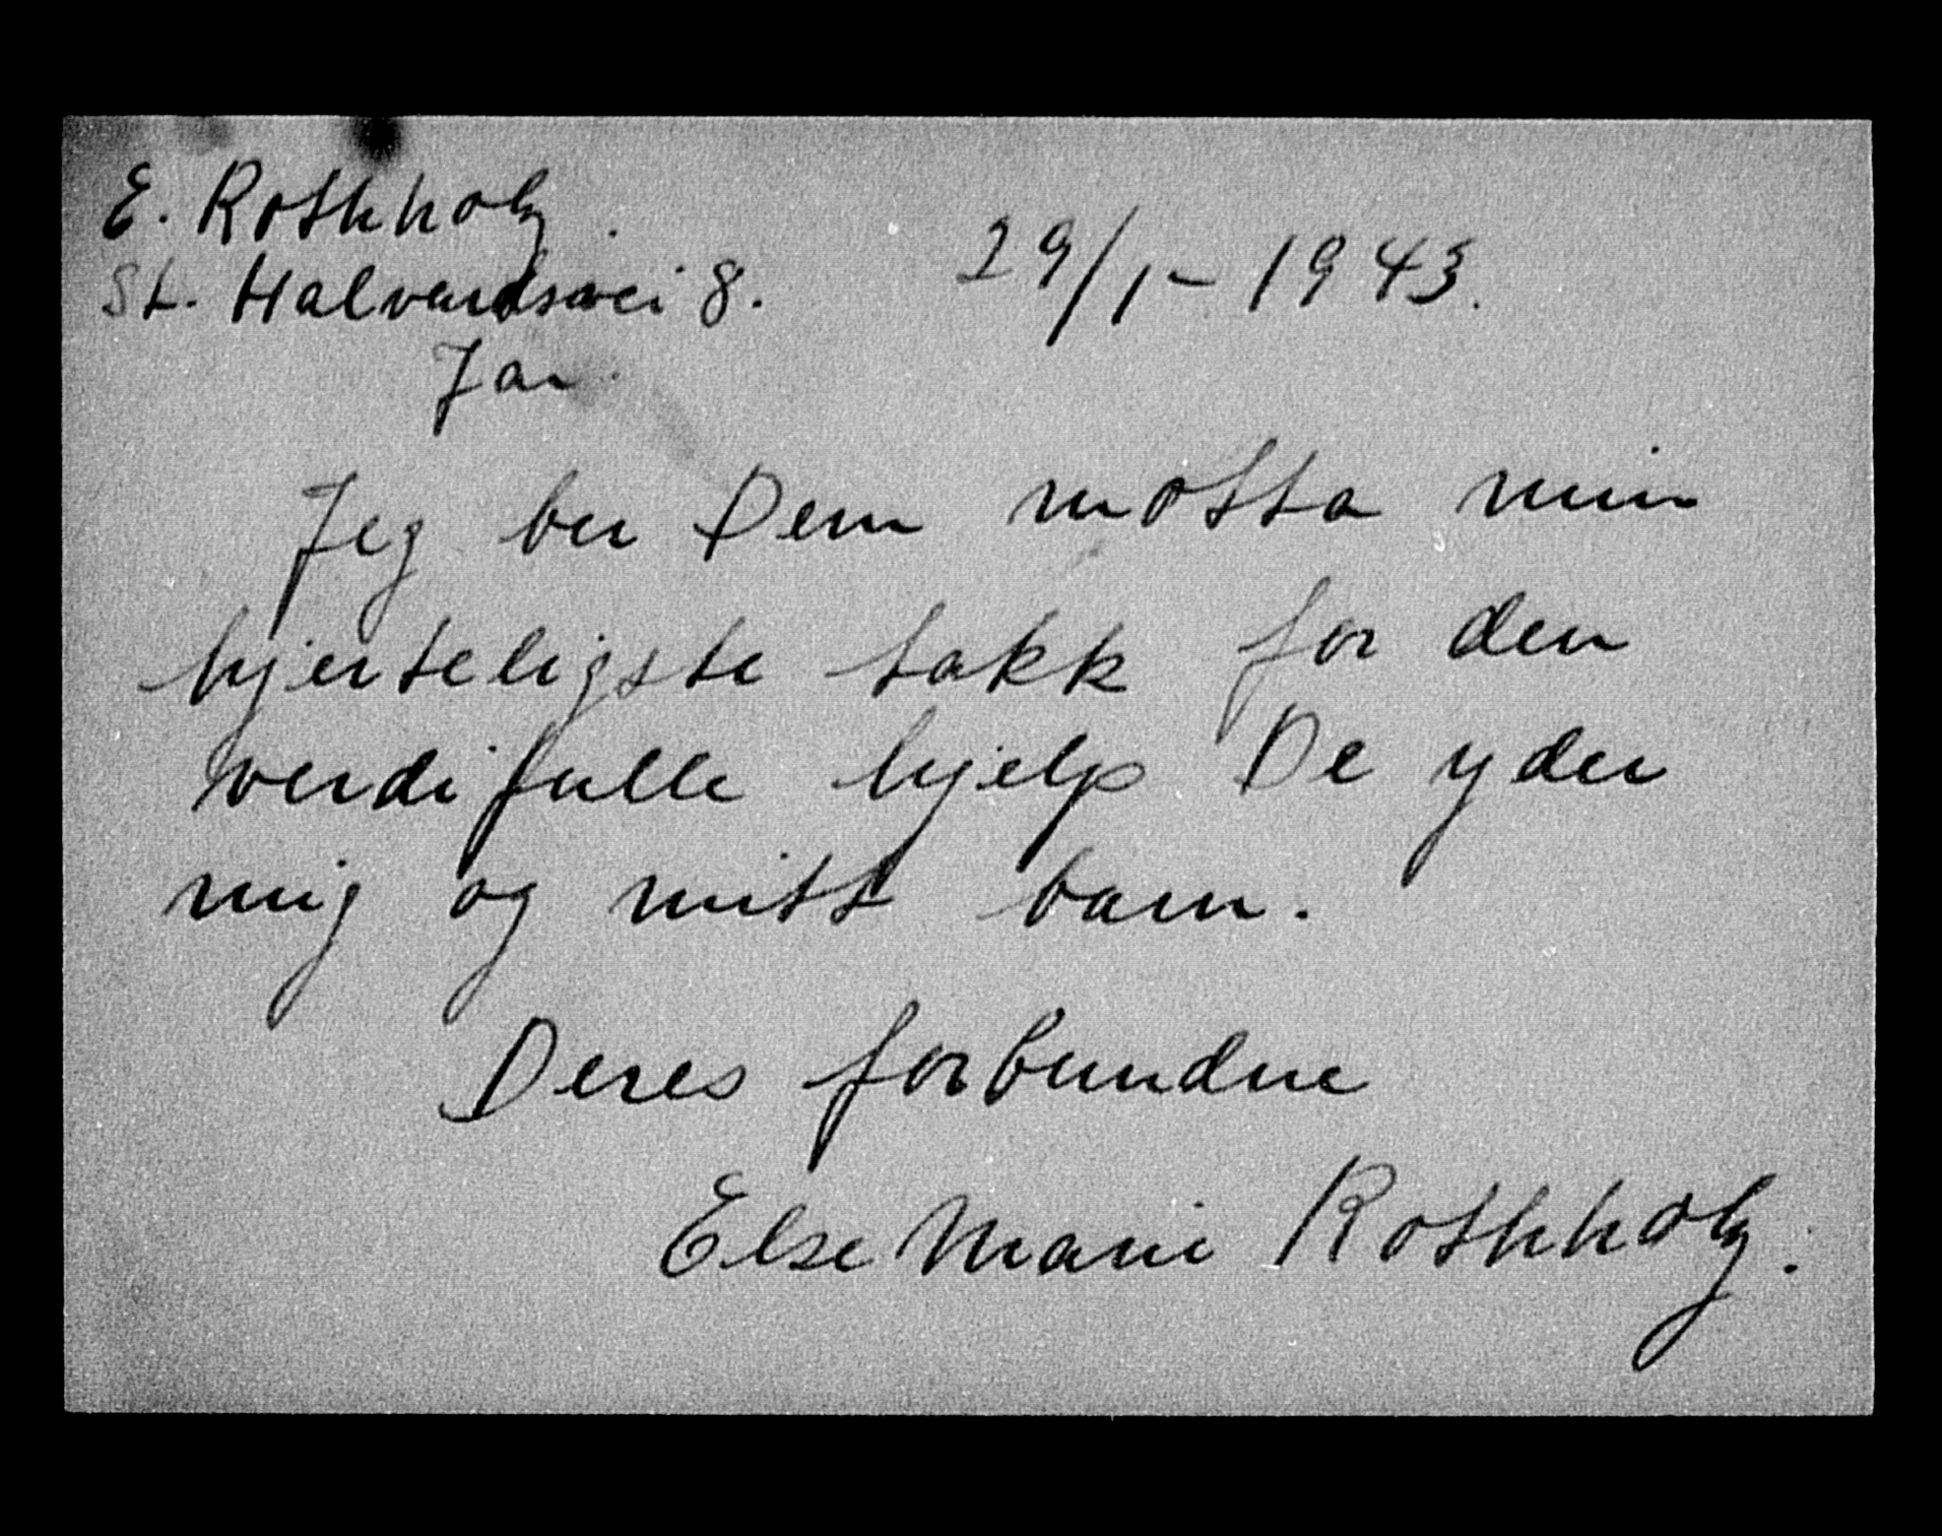 E. Rothholz.
29/1-1943.
St. Halvardsvei 8.
Jar.
Jeg ber Dem motta min
hjerteligste takk for den
verdifulle hjelp De yder
mig og mitt barn.
Deres forbundne
Else Marie Rothholz.